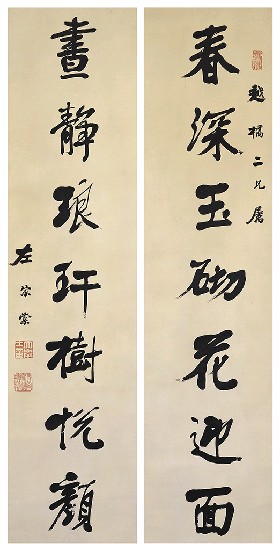 春深玉砌花迎面
越橋二兄屬
晝靜琅玕樹悅顏
左宗棠